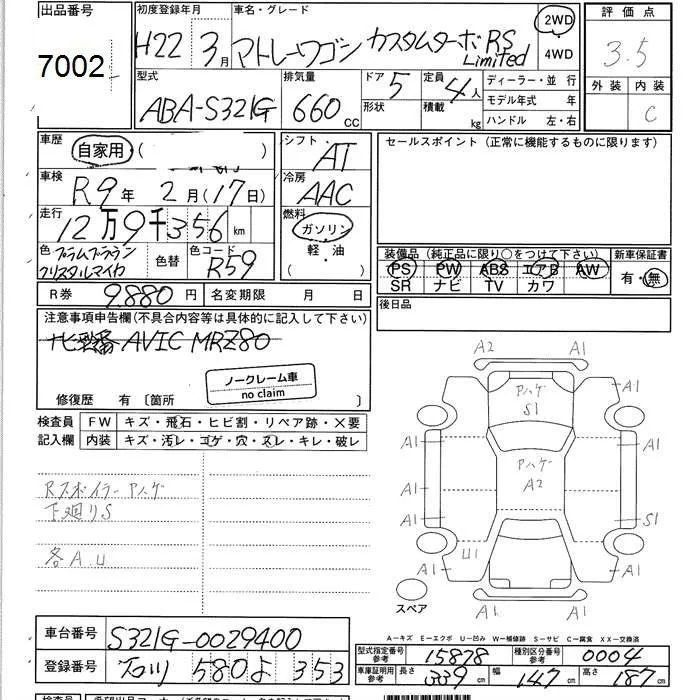 出品番号 初度登録年月 車名・グレード 評価点
7002 H22 3月 マトレーワゴン カスタムターボ RS Limited 2WD 4WD 3.5
型式 排気量 ドア 5 定員 4人 ディーラー・並行 外装 内装
ABA-S321G 660cc 形状 積載 kg モデル年式 年 C
ハンドル 左・右
車歴 自家用 ( シフト AT セールスポイント (正常に機能するものに限ります)
車検 R9年 2月(17日) 冷房 AAC
走行 12万9千356km 燃料 ガソリン
軽・油
色 プラムブラウンクリスタルマイカ 色替 色コード R59
装備品 (純正品に限り○をつけて下さい) 新車保証書
PS PW ABS エアB AW 有・無
SR ナビ TV カワ
R券 9,880円 名変期限 月 日 後日品
注意事項申告欄(不具合内容等は具体的に記入して下さい)
AVIC MRZ80
ノークレーム車
no claim
修復歴 有〔箇所 〕
検査員 FW キズ・飛石・ヒビ割・リペア跡・×要
記入欄 内装 キズ・汚レ・コゲ・穴・スレ・キレ・破レ
Rスポイラー Aハゲ
下廻りS
各A.U
A2 A1
Aハゲ
S1
A1
A1 A1
Aハゲ
A2
A1
A1 S1
U1
A1 A1
スペア
A1 A1
A−キズ E−エクボ U−凹み W−補修跡 S−サビ C−腐食 XX−交換済
車台番号 S321G-0029400
型式指定番号 参考 15878 種別区分番号 参考 0004
登録番号 石川 580 よ 353
車庫証明用 参考 長さ 339 幅 147 高さ 187